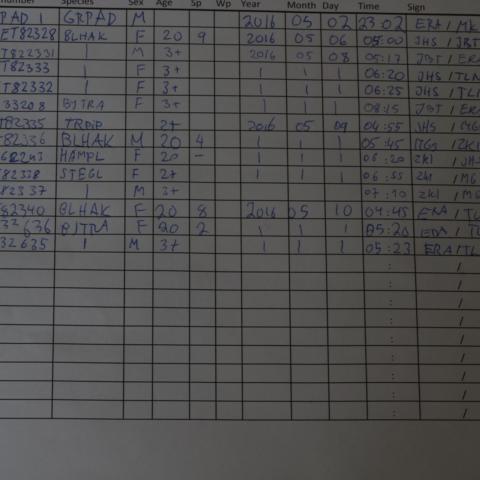 number Species Sex Age Sp Wp Year Month Day Time Sign
PAD 1 GRPAD M 2016 05 02 23:02 ERA / MK
ET82328 BLHAK F 20 9 2016 05 06 05:00 JHS / JBT
T822331 | M 3+ 2016 05 08 05:17 JBT / ERA
T82333 | F 3+ | | | 06:20 JHS / TLN
T82332 | F 3+ | | | 06:25 JHS / TLN
33208 BJTRA F 3+ | | | 08:15 JBT / ERA
T82335 2+ 2016 05 09 04:55 JHS / MG
82336 BLHAK M 20 4 | | | 05:45 / ZKI
HAMPL F 20 - | | | 06:20 ZKI / JHS
T82338 STEGL F 2+ | | | 06:55 ZKI / MG
82337 | M 3+ 07:10 ZKI / MG
82340 BLHAK F 20 8 2016 05 10 04:45 ERA / TL
32636 BJTRA F 20 2 | | | 05:20 ERA / TL
32635 | M 3+ | | | 05:23 ERA / TL
: /
: /
: /
: /
: /
: /
: /
: /